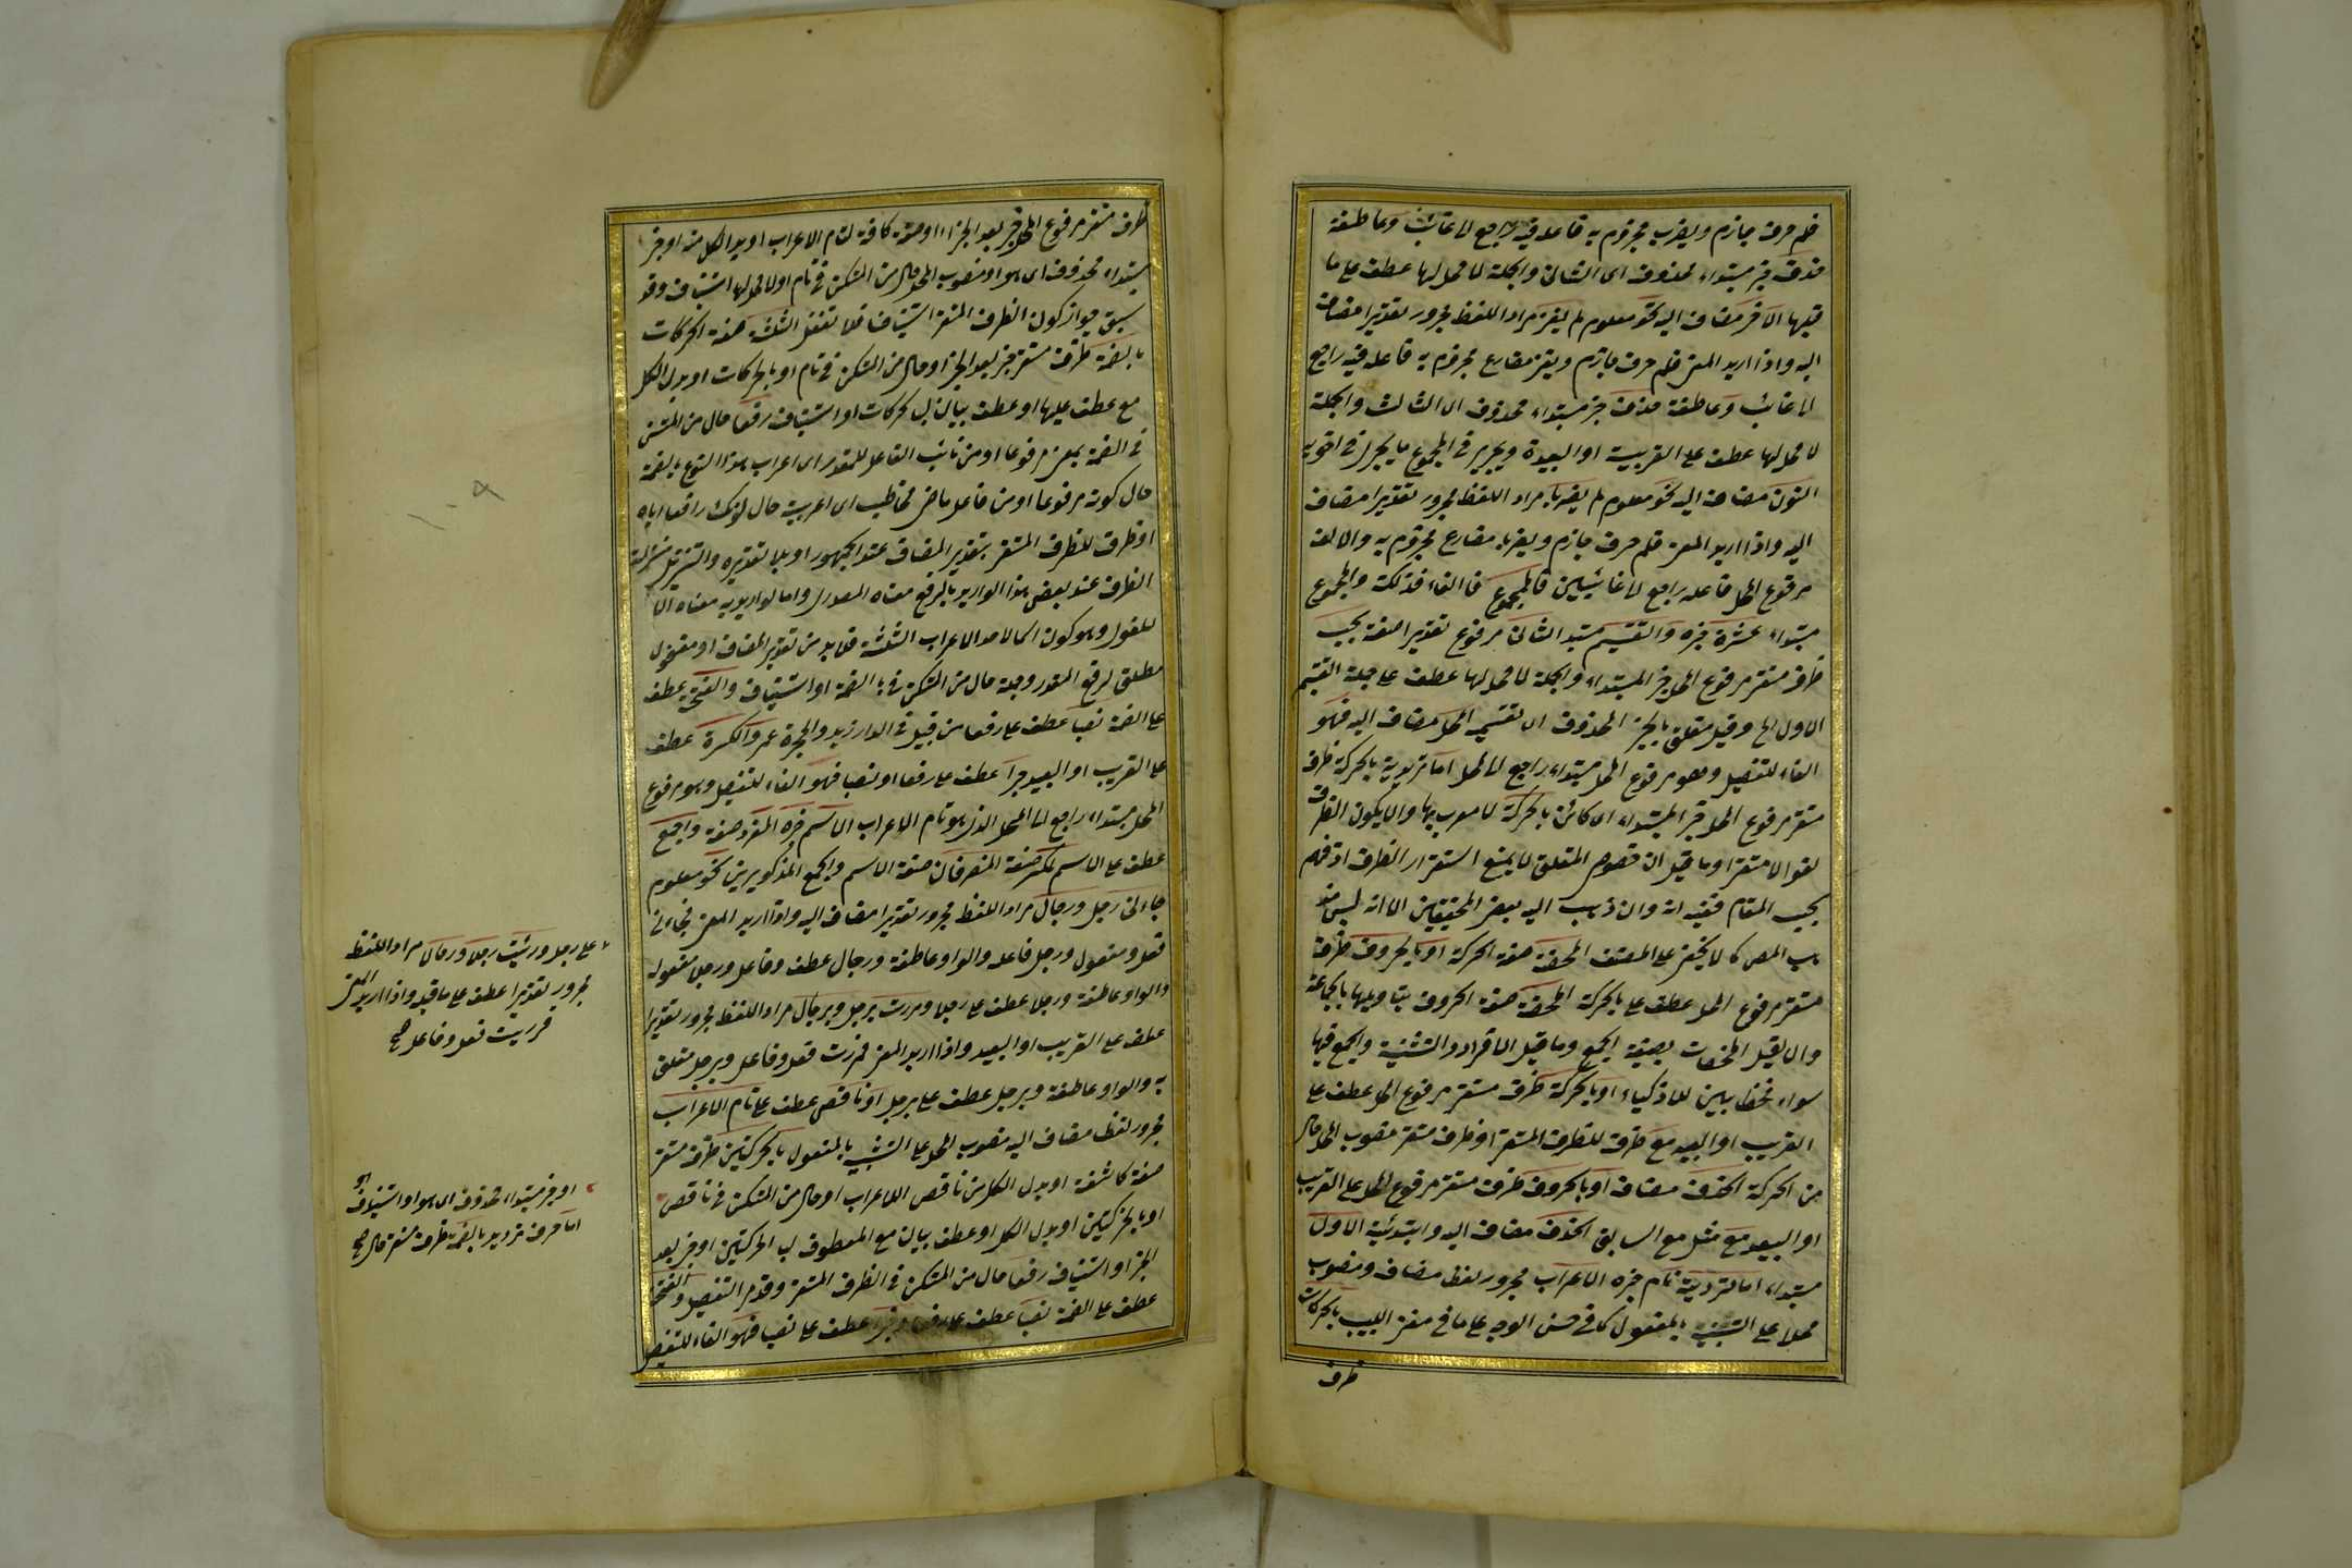 فلم حرف جازم ويضرب مجزوم به فاعله فيه راجع لا غائب وعاطفة
حذف خبر مبتداء محذوف اى الثانى والجملة لا محل لها عطف على ما
قبلها الآخر مضاف اليه نحو معلوم لم يغز مراد اللفظ مجرور تقديرا مضاف
اليه واذا اريد المعنى فلم حرف جازم ويغز مضارع مجزوم به فاعله فيه راجع
لا غائب وعاطفة حذف خبر مبتداء محذوف اى الثالث والجملة
لا محل لها عطف على القريبة او البعيدة ويجرى فى المجموع ما يجرى فى اخويه
النون مضاف اليه نحو معلوم لم يضربا مراد اللفظ مجرور تقديرا مضاف
اليه واذا اريد المعنى فلم حرف جازم ويضربا مضارع مجزوم به والالف
مرفوع المحل فاعله راجع لا غائبين فالمجموع فا الفاء فذلكة والمجموع
مبتداء عشرة خبره والتقسيم مبتدا الثانى مرفوع تقديرا صفة بحسب
ظرف مستقر مرفوع المحل خبر المبتداء والجملة لا محل لها عطف على جملة التقسيم
الاول الخ وقيل متعلق بالخبر المحذوف اى تقسيم المحل مضاف اليه فهو
الفاء للتفصيل وهو مرفوع المحل مبتداء راجع الى المحل اما ترديدية بالحركة ظرف
مستقر مرفوع المحل خبر المبتداء اى كائن بالحركة لا معرب بها والا يكون الظرف
لغوا لا مستقرا وما قيل ان خصوص المتعلق لا يمنع استقرار الظرف اذ فهم
بحسب المقام ففيه انه وان ذهب اليه بعض المحققين الا انه ليس مذ
هب المص كما لا يخفى على المصنف المحضة صفة الحركة او بالحروف ظرف
مستقر مرفوع المحل عطف على بالحركة المحضة صفة الحروف بتأويلها بالجماعة
وان لم يقل المحضات بصيغة الجمع وما قيل الافراد والتثنية والجمع فيها
سواء فخطأ بين للاذكياء او بالحركة ظرف مستقر مرفوع المحل عطف على
القريب او البعيد مع ظرف للظرف المستقر او ظرف مستقر منصوب المحل حال
من الحركة الحذف مضاف او بالحروف ظرف مستقر مرفوع المحل على القريب
او البعيد مع مثل مع السابق الحذف مضاف اليه وابتدائية الاول
مبتداء اما ترديدية تام خبره الاعراب مجرور لفظا مضاف ومنصوب
محلا على التشبيه بالمفعول كما فى حسن الوجه على ما فى مغنى اللبيب بالحركات
ظرف
ظرف مستقر مرفوع المحل خبر بعد الخبر او صفة كاشفة لتام الاعراب او بدل الكل منه او خبر
مبتداء محذوف اى هو او منصوب المحل حال من المستكن فى تام او لا محل لها استيناف وقد
سبق جواز كون الظرف المستقر استينافا فلا تغفل الثلثة صفة الحركات
بالضمة ظرف مستقر خبر بعد الخبر او حال من المستكن فى تام او بالحركات او بدل الكل
مع عطف عليها او عطف بيان للحركات او استيناف رفعا حال من المستكن
فى الضمة بمعنى مرفوعا او من نائب الفاعل للمقدر اى اعراب هذا النوع بالضمة
حال كونه مرفوعا او من فاعل ماض مخاطب اى اعربت حال كونك رافعا اياه
او ظرف للظرف المستقر بتقدير المضاف عند الجمهور او بلا تقديره والتنزيل منزلة
الظرف عند بعض هذا لو اريد بالرفع معناه المصدرى واما لو اريد به معناه الا
مطلق لرفع المقدر وجملة حال من المستكن فى بالضمة او استيناف والفتحة عطف
على الضمة نصبا عطف على رفعا من قبيل فى الدار زيد والحجرة عمرو والكسرة عطف
على القريب او البعيد جرا عطف على رفعا او نصبا فهو الفاء للتفصيل وهو مرفوع
المحل مبتداء راجع الى المحل الذى هو تام الاعراب الاسم خبره المفرد صفة والجمع
عطف على الاسم المكسر صفة المنصرفان صفة الاسم والجمع المذكورين نحو معلوم
جاءنى رجل ورجال مراد اللفظ مجرور تقديرا مضاف اليه واذا اريد المعنى فجاءنى
فعل ومفعول ورجل فاعله والواو عاطفة ورجال عطف وفاعل ورجلا مفعوله
والواو عاطفة ورجالا عطف على رجلا ومررت برجل وبرجال مراد اللفظ مجرور تقديرا
عطف على القريب او البعيد واذا اريد المعنى فمررت فعل وفاعل وبرجل متعلق
به والواو عاطفة وبرجال عطف على برجل او ناقص عطف على تام الاعراب
مجرور لفظا مضاف اليه منصوب المحل على التشبيه بالمفعول بالحركتين ظرف مستقر
صفة كاشفة او بدل الكل من ناقص الاعراب او حال من المستكن فى ناقص
او بالحركتين او بدل الكل او عطف بيان مع المعطوف بالحركتين او خبر بعد
الخبر او استيناف رفعا حال من المستكن فى الظرف المستقر وقد مر التفصيل والفتحة
عطف على الضمة نصبا عطف على رفعا وجرا عطف على نصبا فهو الفاء للتفصيل
على رجل ورأيت رجلا ورجالا مراد اللفظ
مجرور تقديرا عطف على ما قبله واذا اريد المعنى
فرأيت فعل وفاعل صح
او خبر مبتداء محذوف اى هو او استيناف
اما حرف ترديد بالضمة ظرف مستقر حال صح